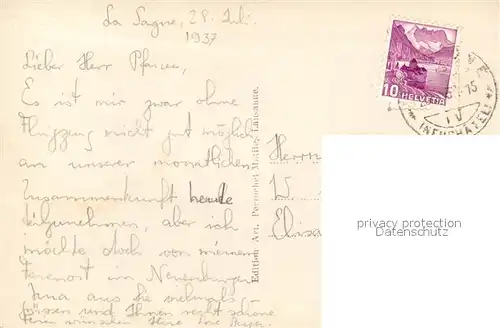 La Sagne, 28. Juli.
1937
Lieber Herr Pfarrer,
Es ist mir zwar ohne
Flugzeug nicht gut möglich
an unserer monatlichen
Zusammenkunft heute
teilzunehmen, aber ich
möchte doch von meinem
Ferienort im Neuenburger
Jura aus Sie vielmals
grüssen und Ihnen recht schöne
Ferien wünschen Ihre
Edition Art. Perrochet Matile, Lausanne.
10 HELVETIA
15
IV
(NEUCHÂTEL)
Herrn
W
Elisa
privacy protection
Datenschutz